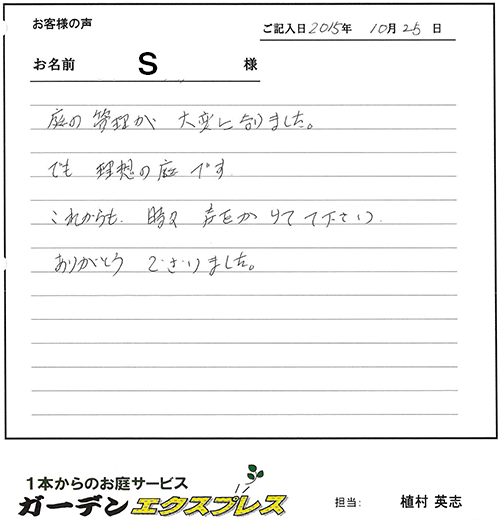 お客様の声
ご記入日2015年 10月25日
お名前 S 様
庭の管理が 大変に合りました。
でも 理想の庭です
これからも、時々 声をかけて下さい
ありがとう ございました。
1本からのお庭サービス
ガーデンエクスプレス
担当: 植村 英志